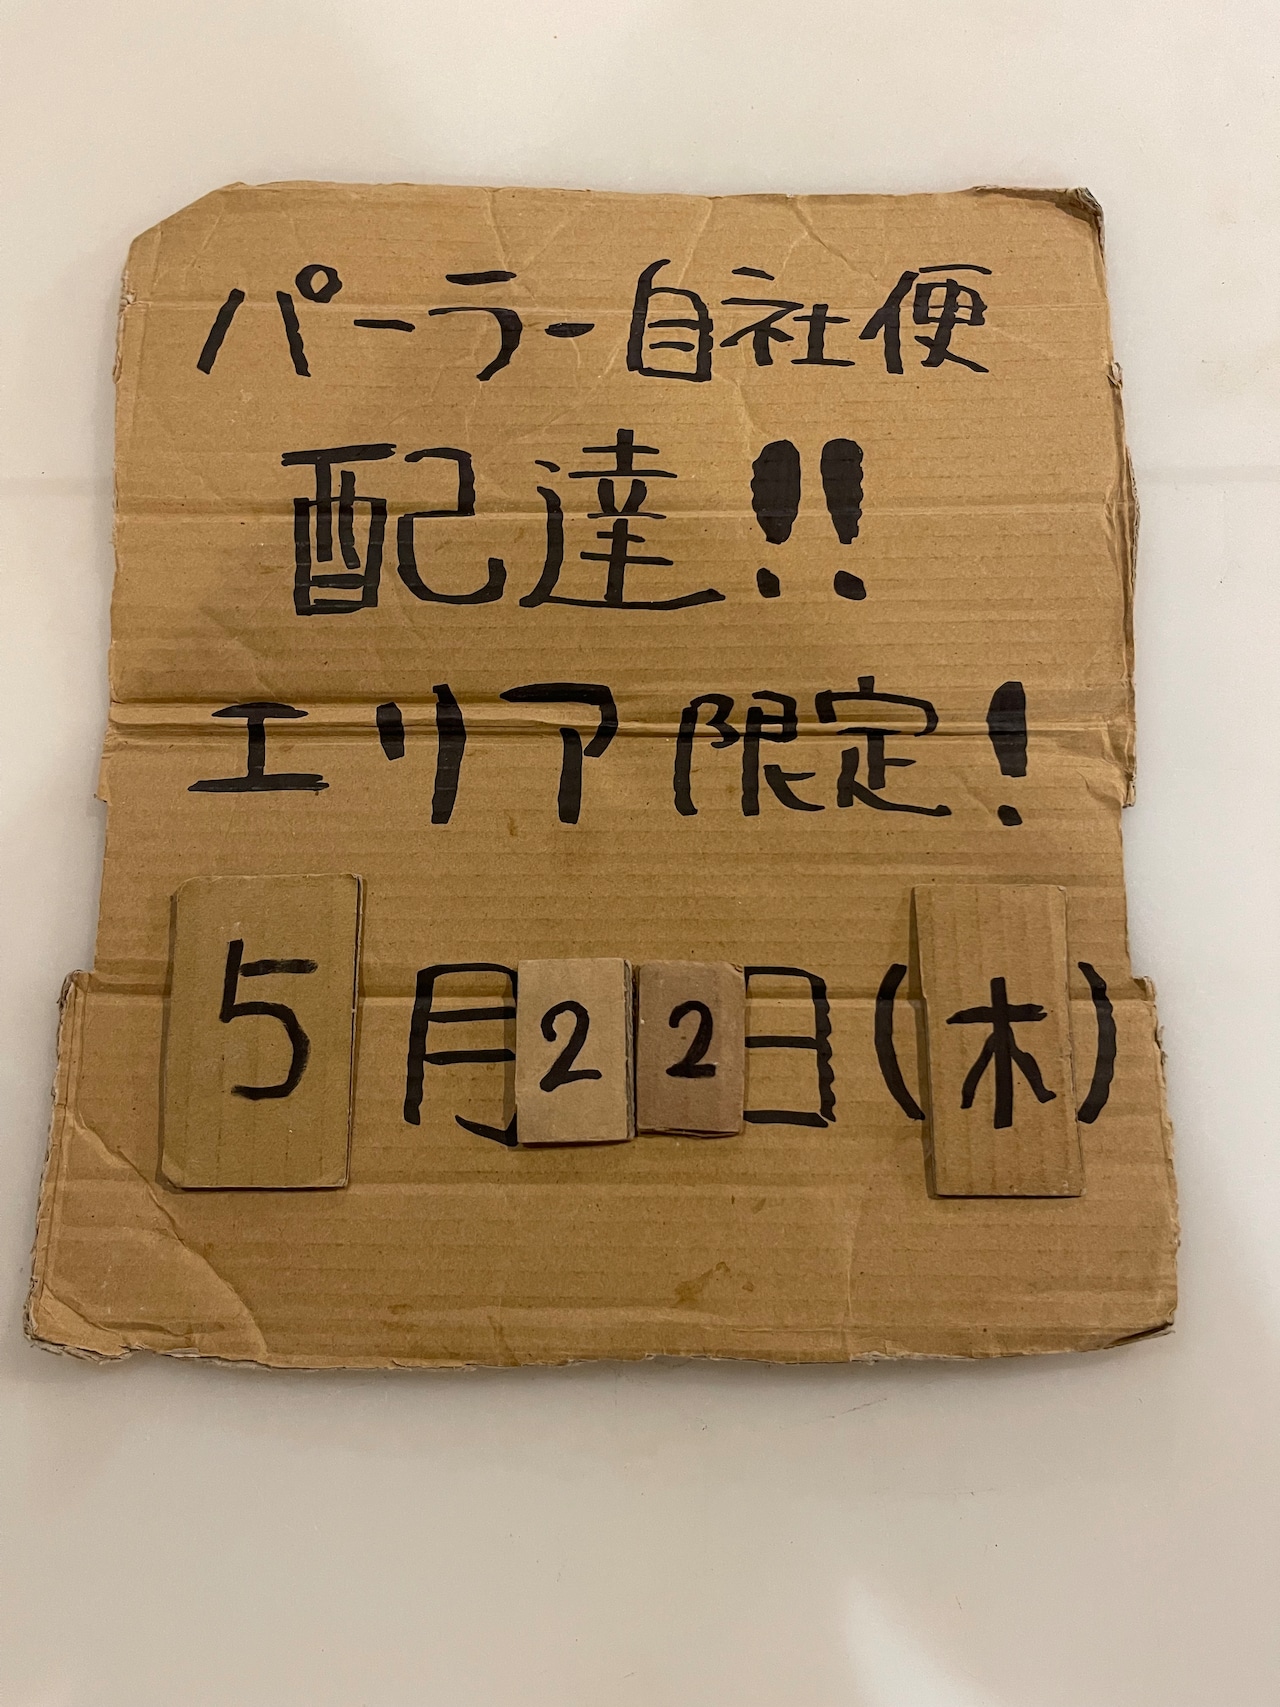 パーラー自社便
配達!!
エリア限定!
5月22日(木)